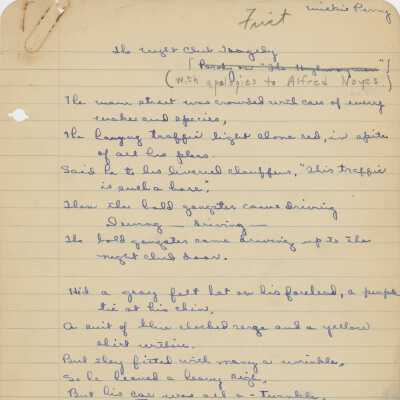 Mickie Perry
First
The Night Club Tragedy
[Parody on "The Highwayman"]
(with apologies to Alfred Noyes.)
The main street was crowded with cars of every
makes and species,
The hanging traffic light shone red, in spite
of all his pleas.
Said he to his liveried chauffeur, "This traffic
is such a bore",
When the bold gangster came driving
Driving — driving —
The bold gangster came driving up to the
night club door.
He'd a gray felt hat on his forehead, a purple
tie at his chin,
A suit of blue checked serge and a yellow
shirt within.
But they fitted with many a wrinkle,
So he heaved a heavy sigh,
But his car was all a - twinkle,